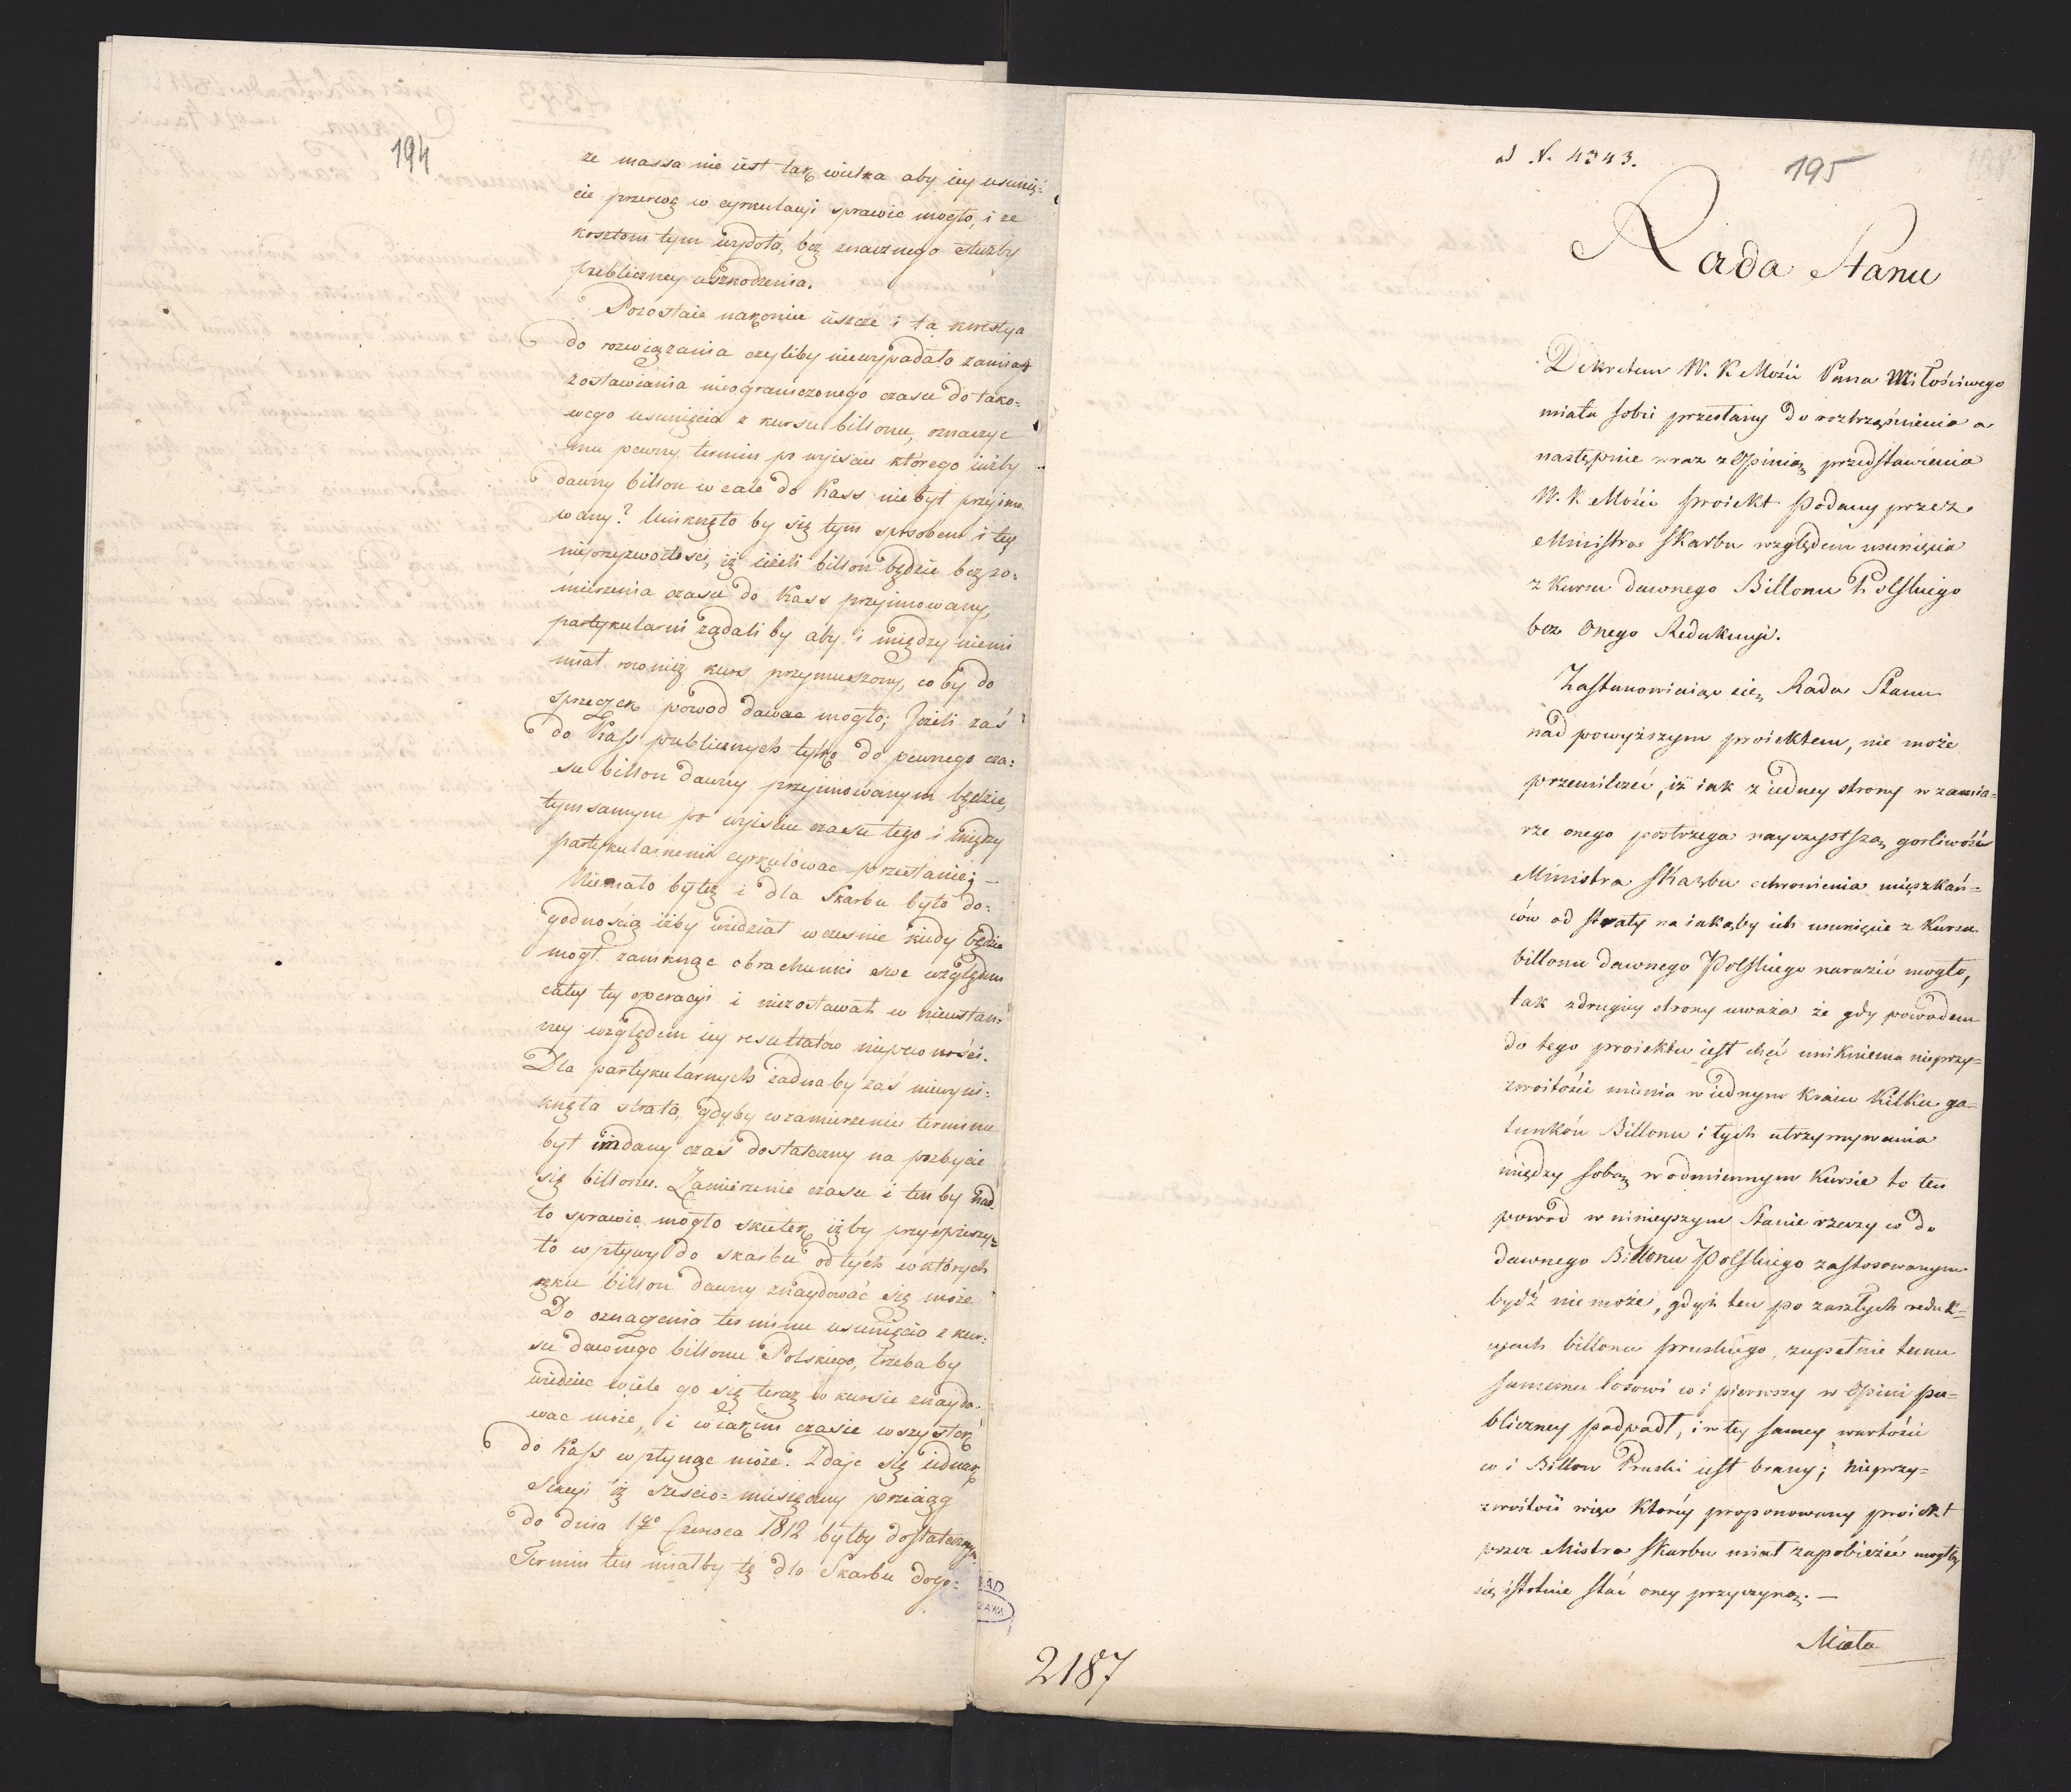 194
że massa nie iest tak wielka aby iey usunię=
cie przerwę w cyrkulacyi sprawić mogło, i że
kosztom tym wydoła, bez znacznego służby
publiczney uszkodzenia.
Pozostaie nakoniec ieszcze i ta kwestya
do rozwiązania czyliby niewypadało zamiast
zostawiania nieograniczonego czasu do tako=
wego usunięcia z kursu billonu, oznaczyć
mu pewny termin po wyjściu którego iużby
dawny billon wcale do Kass nie był przyimo
wany? Uniknęło by się tym sposobem i tey
nieprzyzwoitości, iż ieżeli billon będzie bez za=
mierzenia czasu do Kass przyimowany,
partykularni żądali by aby i między niemi
miał rownież kurs przymuszony, co by do
sprzeczek powod dawać mogło; Jeżeli zaś
do Kass publicznych tylko do pewnego cza=
su billon dawny przyimowanym będzie,
tymsamym po wyiściu czasu tego i między
partykularnemi cyrkulować przestanie; —
Niemało by też i dla Skarbu było do=
godnością iżby wiedział wcześnie kiedy będzie
mogł zamknąć obrachunki swe względem
całey tey operacyi i niezostawał w nieustan=
ney względem iey resultatów niepewności.
Dla partykularnych żadna by zaś niewyni=
knęła strata, gdyby w zamierzeniu terminu
był im dany czas dostateczny na pozbycie
się billonu. Zamierzenie czasu i ten by nad
to sprawić mogło skutek iżby przyspieszy=
ło wpływy do skarbu od tych w których
ręku billon dawny znaydować się może
Do oznaczenia terminu usunięcia z kur=
su dawnego billonu Polskiego, trzeba by
wiedzieć wiele go się teraz w kursie znaydo=
wać może, i w iakim czasie wszystek
do Kass wpłynąć może. Zdaje się iednak
Sekcyi iż sześcio=miesięczny przeciąg
do dnia 1go Czerwca 1812 byłby dostateczny.
Termin ten miałby tę dla Skarbu dogo=
ad N. 4343.
195
Rada Stanu
Dekretem W. K Mości Pana Miłościwego
miała sobie przesłany do roztrząśnienia a
następnie wraz z Opinią przedstawienia
W. K Mości proiekt podany przez
Ministra Skarbu względem usunięcia
z Kursu dawnego Billonu Polskiego
bez Onego Redukcyi.
Zastanowiaiąc się Rada Stanu
nad powyższym proiektem, nie może
przemilczeć, iż iak z iedney strony w zamia=
rze onego postrzega nayczystszą gorliwość
Ministra Skarbu ochronienia mięszkań=
ców od straty na iakąby ich usunięcie z Kursu
billonu dawnego Polskiego narazić mogło,
tak zdrugiey strony uważa że gdy powodem
do tego proiektu iest chęć uniknienia nieprzy=
zwoitości mienia w iednym Kraiu Kilku ga=
tunków Billonu i tych utrzymywania
między sobą w odmiennym Kursie to ten
powód w ninieyszym Stanie rzeczy co do
dawnego Billonu Polskiego zastosowanym
bydź nie może, gdyż ten po zaszłych reduk=
cyach billonu pruskiego, zupełnie temu
samemu losowi co i pierwszy w Opinii pu=
bliczney podpadł, i w tey samey wartości
co i Billon Pruski iest brany; nieprzy=
zwoitość więc którey proponowany proiekt
przez Mistra Skarbu miał zapobieżeć mogłby
się istotnie stać oney przyczyną. —
Miała
2187